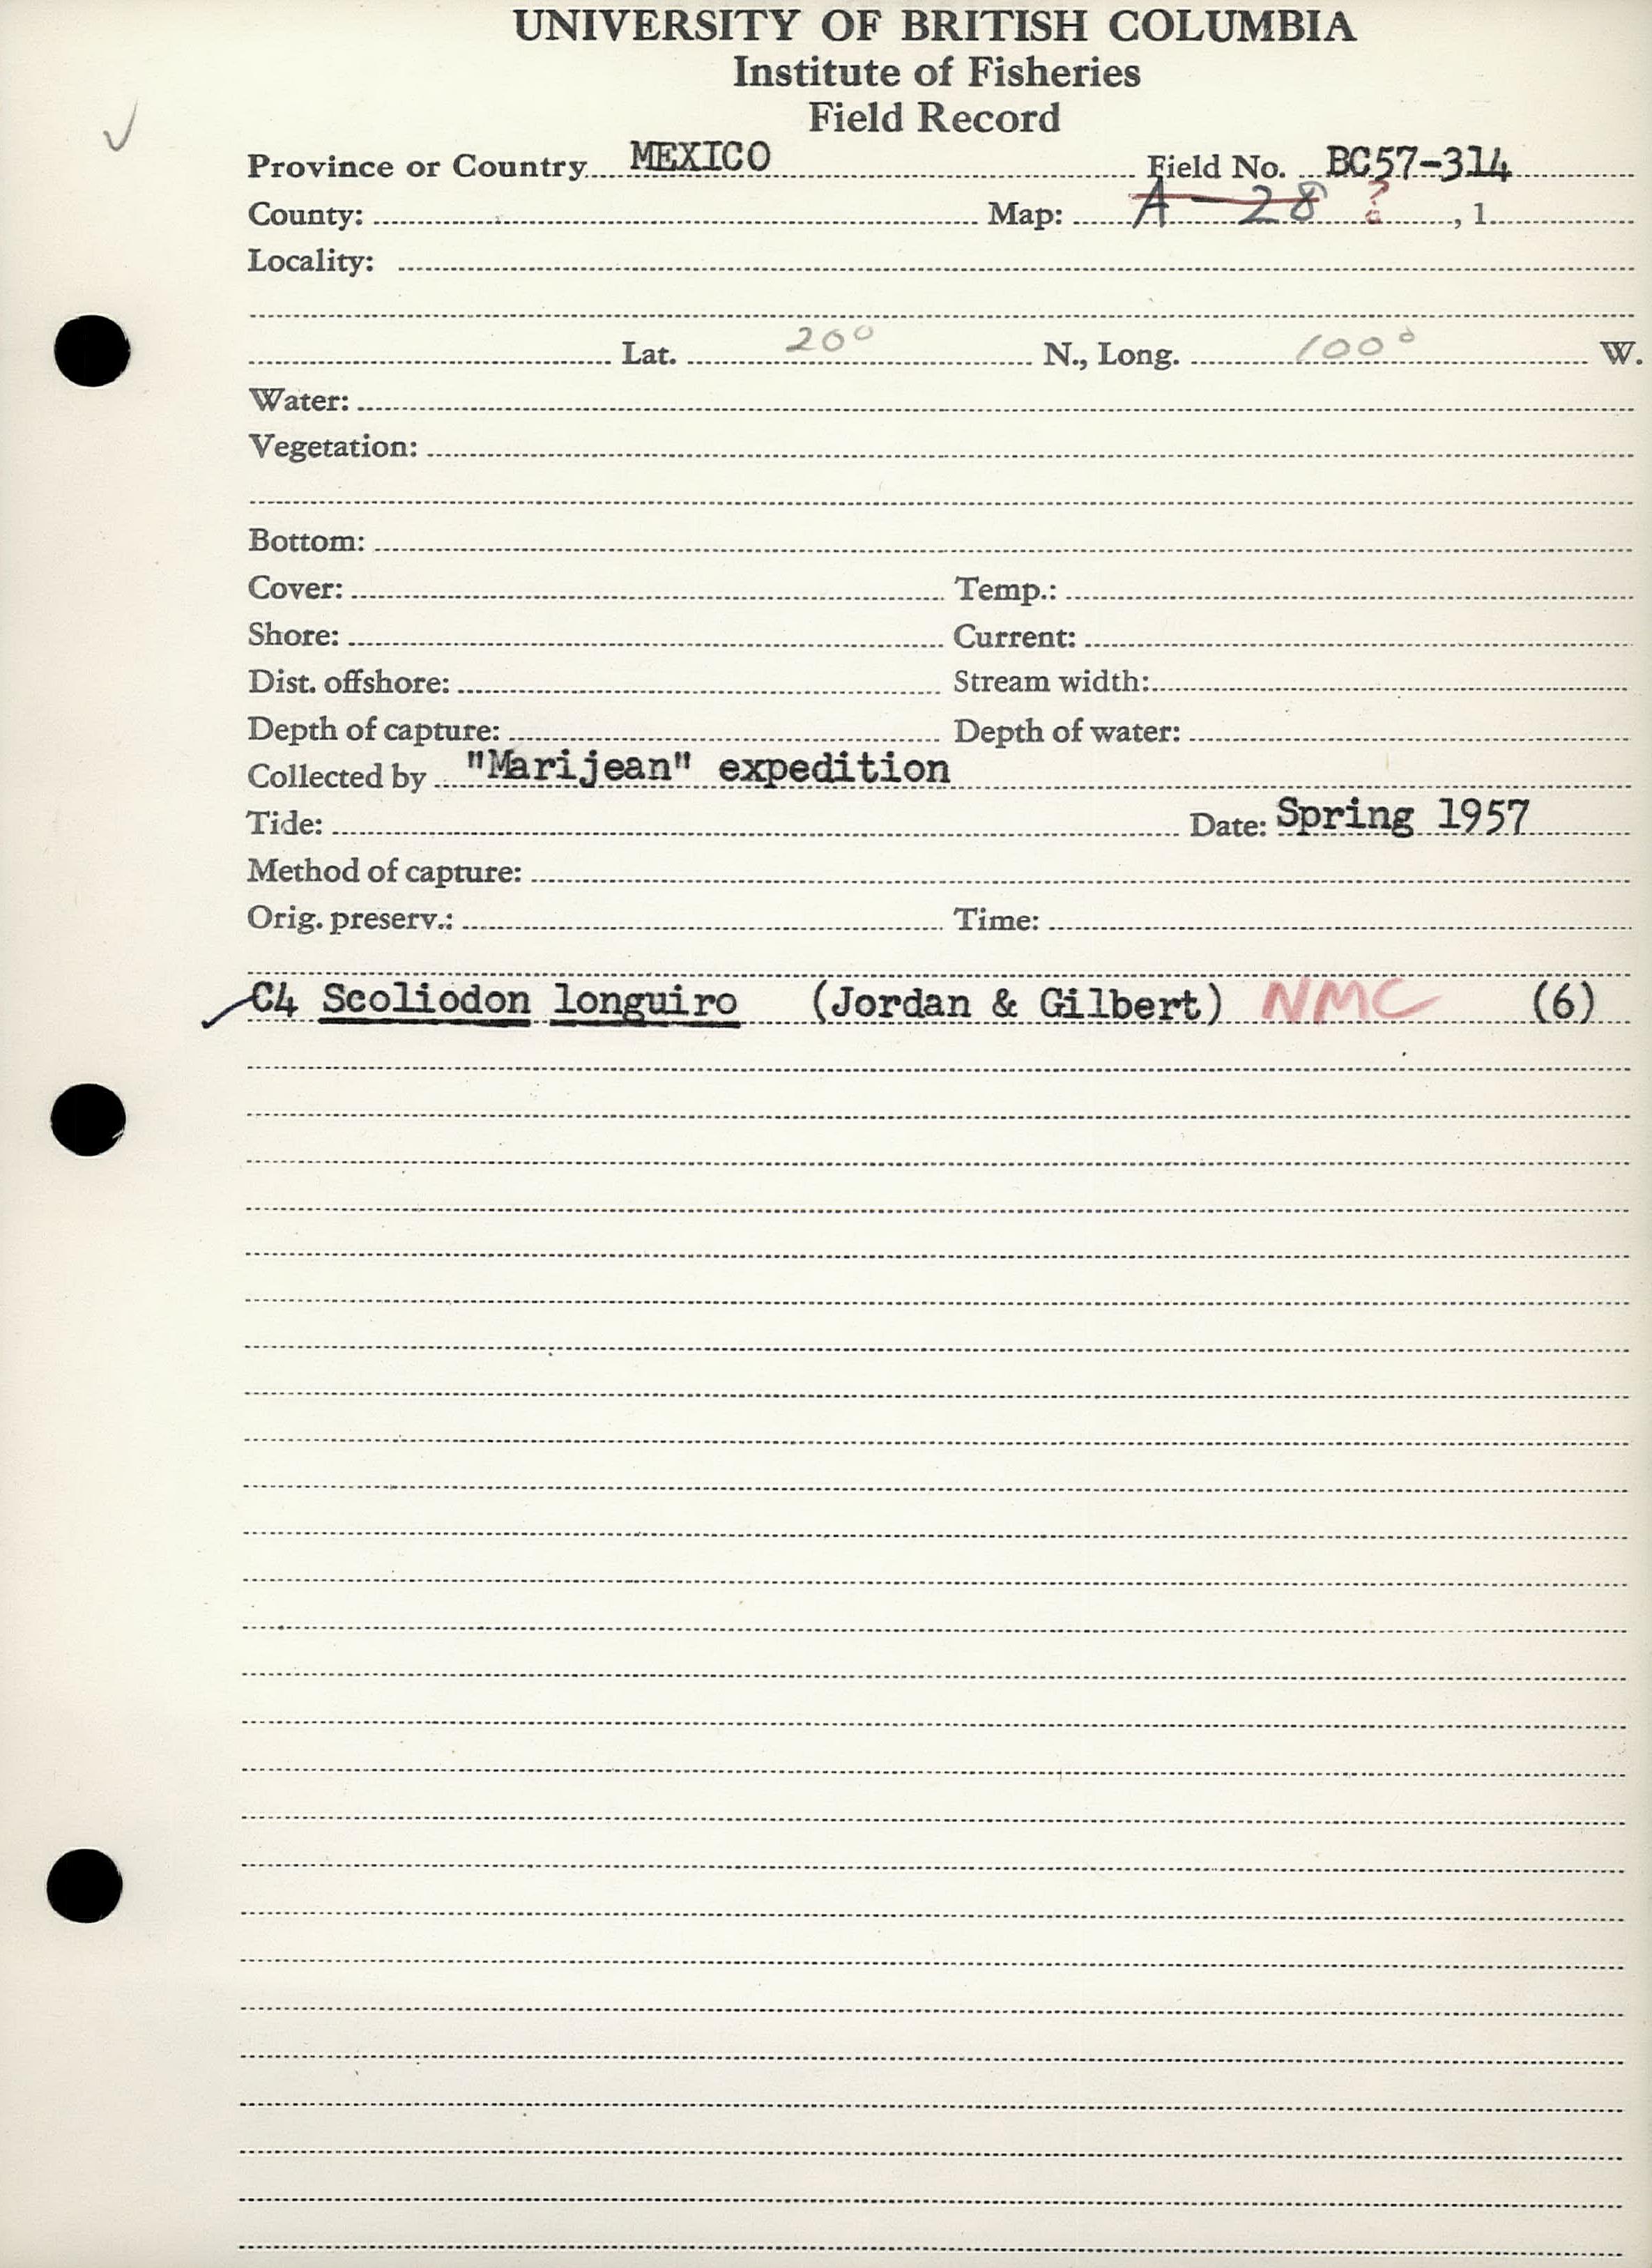 UNIVERSITY OF BRITISH COLUMBIA
Institute of Fisheries
Field Record
Province or Country MEXICO Field No. BC57-314
County: Map: A-28 ? , 1
Locality:
Lat. 20° N., Long. 100° W.
Water:
Vegetation:
Bottom:
Cover: Temp.:
Shore: Current:
Dist. offshore: Stream width:
Depth of capture: Depth of water:
Collected by "Marijean" expedition
Tide: Date: Spring 1957
Method of capture:
Orig. preserv.: Time:
C4 Scoliodon longuiro (Jordan & Gilbert) NMC (6)